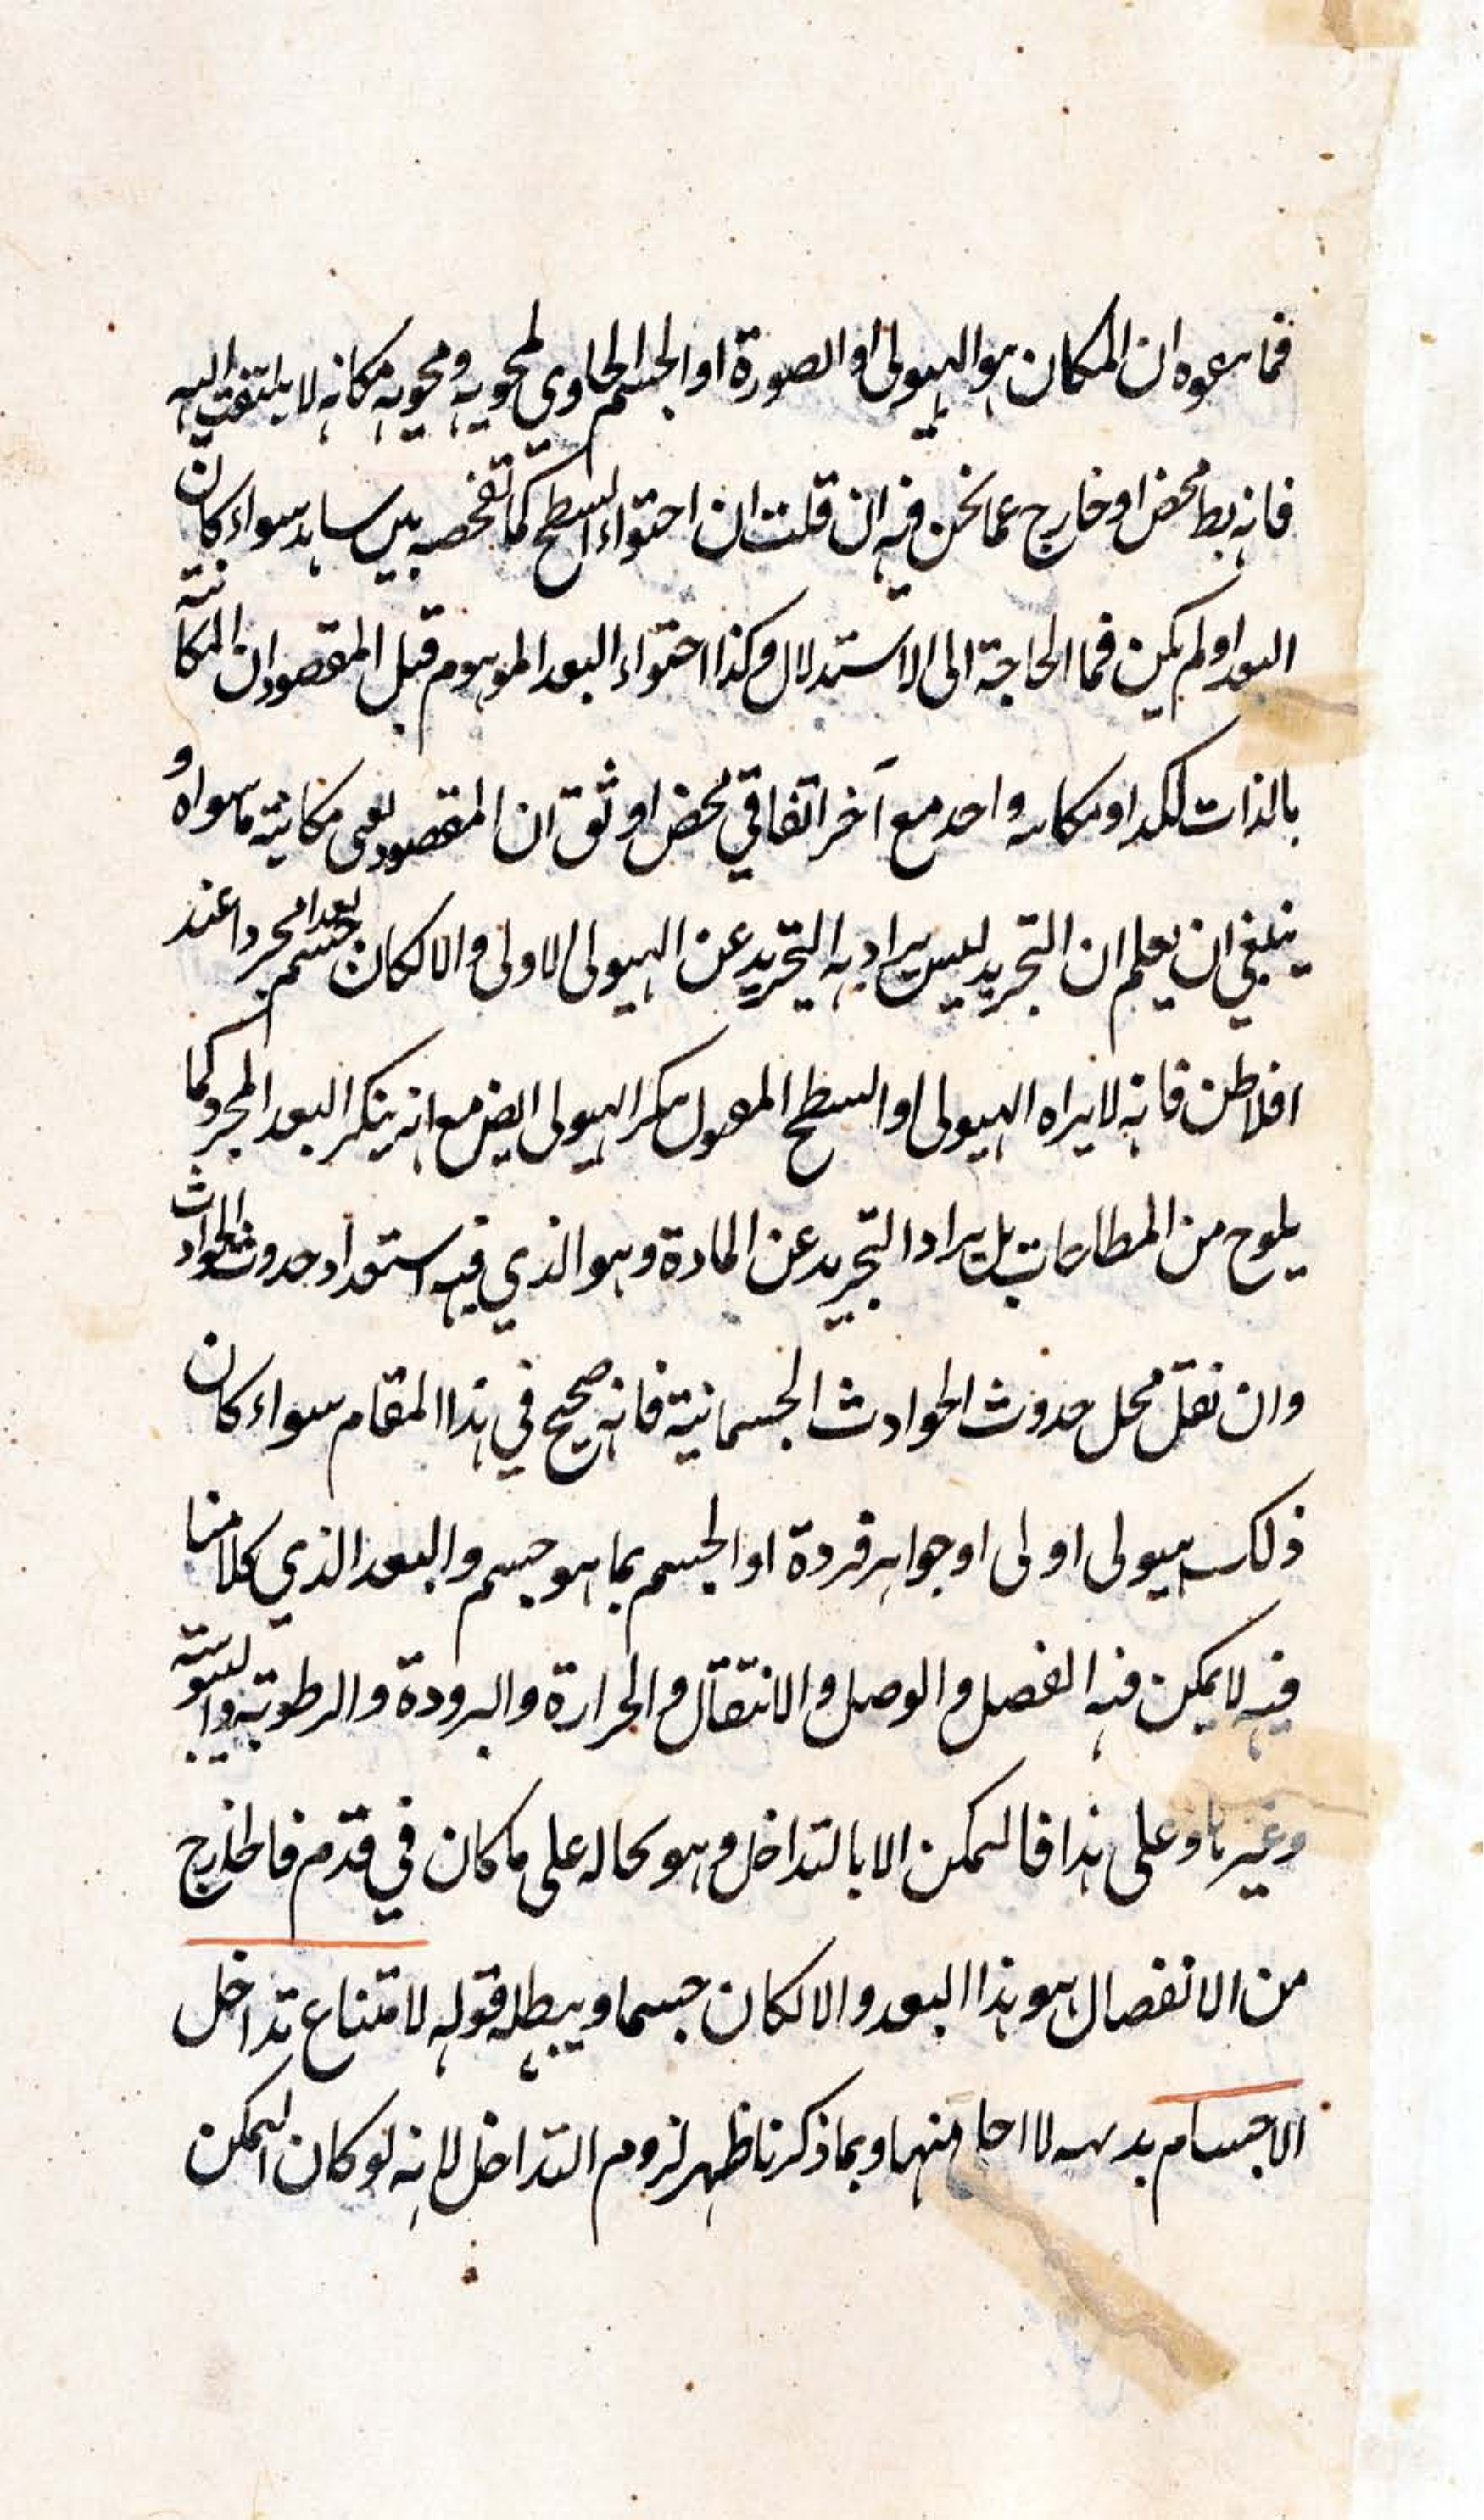 فما سموه ان المكان هو الهيولى او الصورة او الجسم الحاوي لمحويه ومحويه مكانه لا يلتفت اليه
فانه بط محض او خارج عما نحن فيه ان قلت ان احتواء السطح كما تفحصه بين سواء كان
البعد او لم يكن فما الحاجة الى الاستدلال وكذا احتواء البعد الموهوم قبل المقصود ان المكانية
بالذات او مكانيه واحد مع آخر اتفاقي محض او ثوق ان المقصود نعى مكانية ما سواه و
ينبغي ان يعلم ان التجريد ليس يراد به التجريد عن الهيولى الاولى والا لكان جسم بعدا مجردا عند
افلاطن فانه لا يراه الهيولى او السطح المعول ينكر الهيولى ايض مع انه ينكر البعد المجرد كما
يلوح من المطارحات بل يراد التجريد عن المادة وهو الذي فيه استعداد حدوث الحوادث
وان نقل محل حدوث الحوادث الجسمانية فانه صحيح في هذا المقام سواء كان
ذلك هيولى اولى او جواهر فردة او الجسم بما هو جسم والبعد الذي كلامنا
فيه لا يمكن فيه الفصل والوصل والانتقال والحرارة والبرودة والرطوبة واليبوسة
وغيرها وعلى هذا فالتمكن الا بالتداخل وهو بحاله على ما كان في قدم فالخارج
من الانفصال هو هذا البعد والا لكان جسما ويبطله قوله لامتناع تداخل
الاجسام بديهيه لا منهما وبما ذكرنا ظهر لزوم التداخل لانه لو كان التمكن